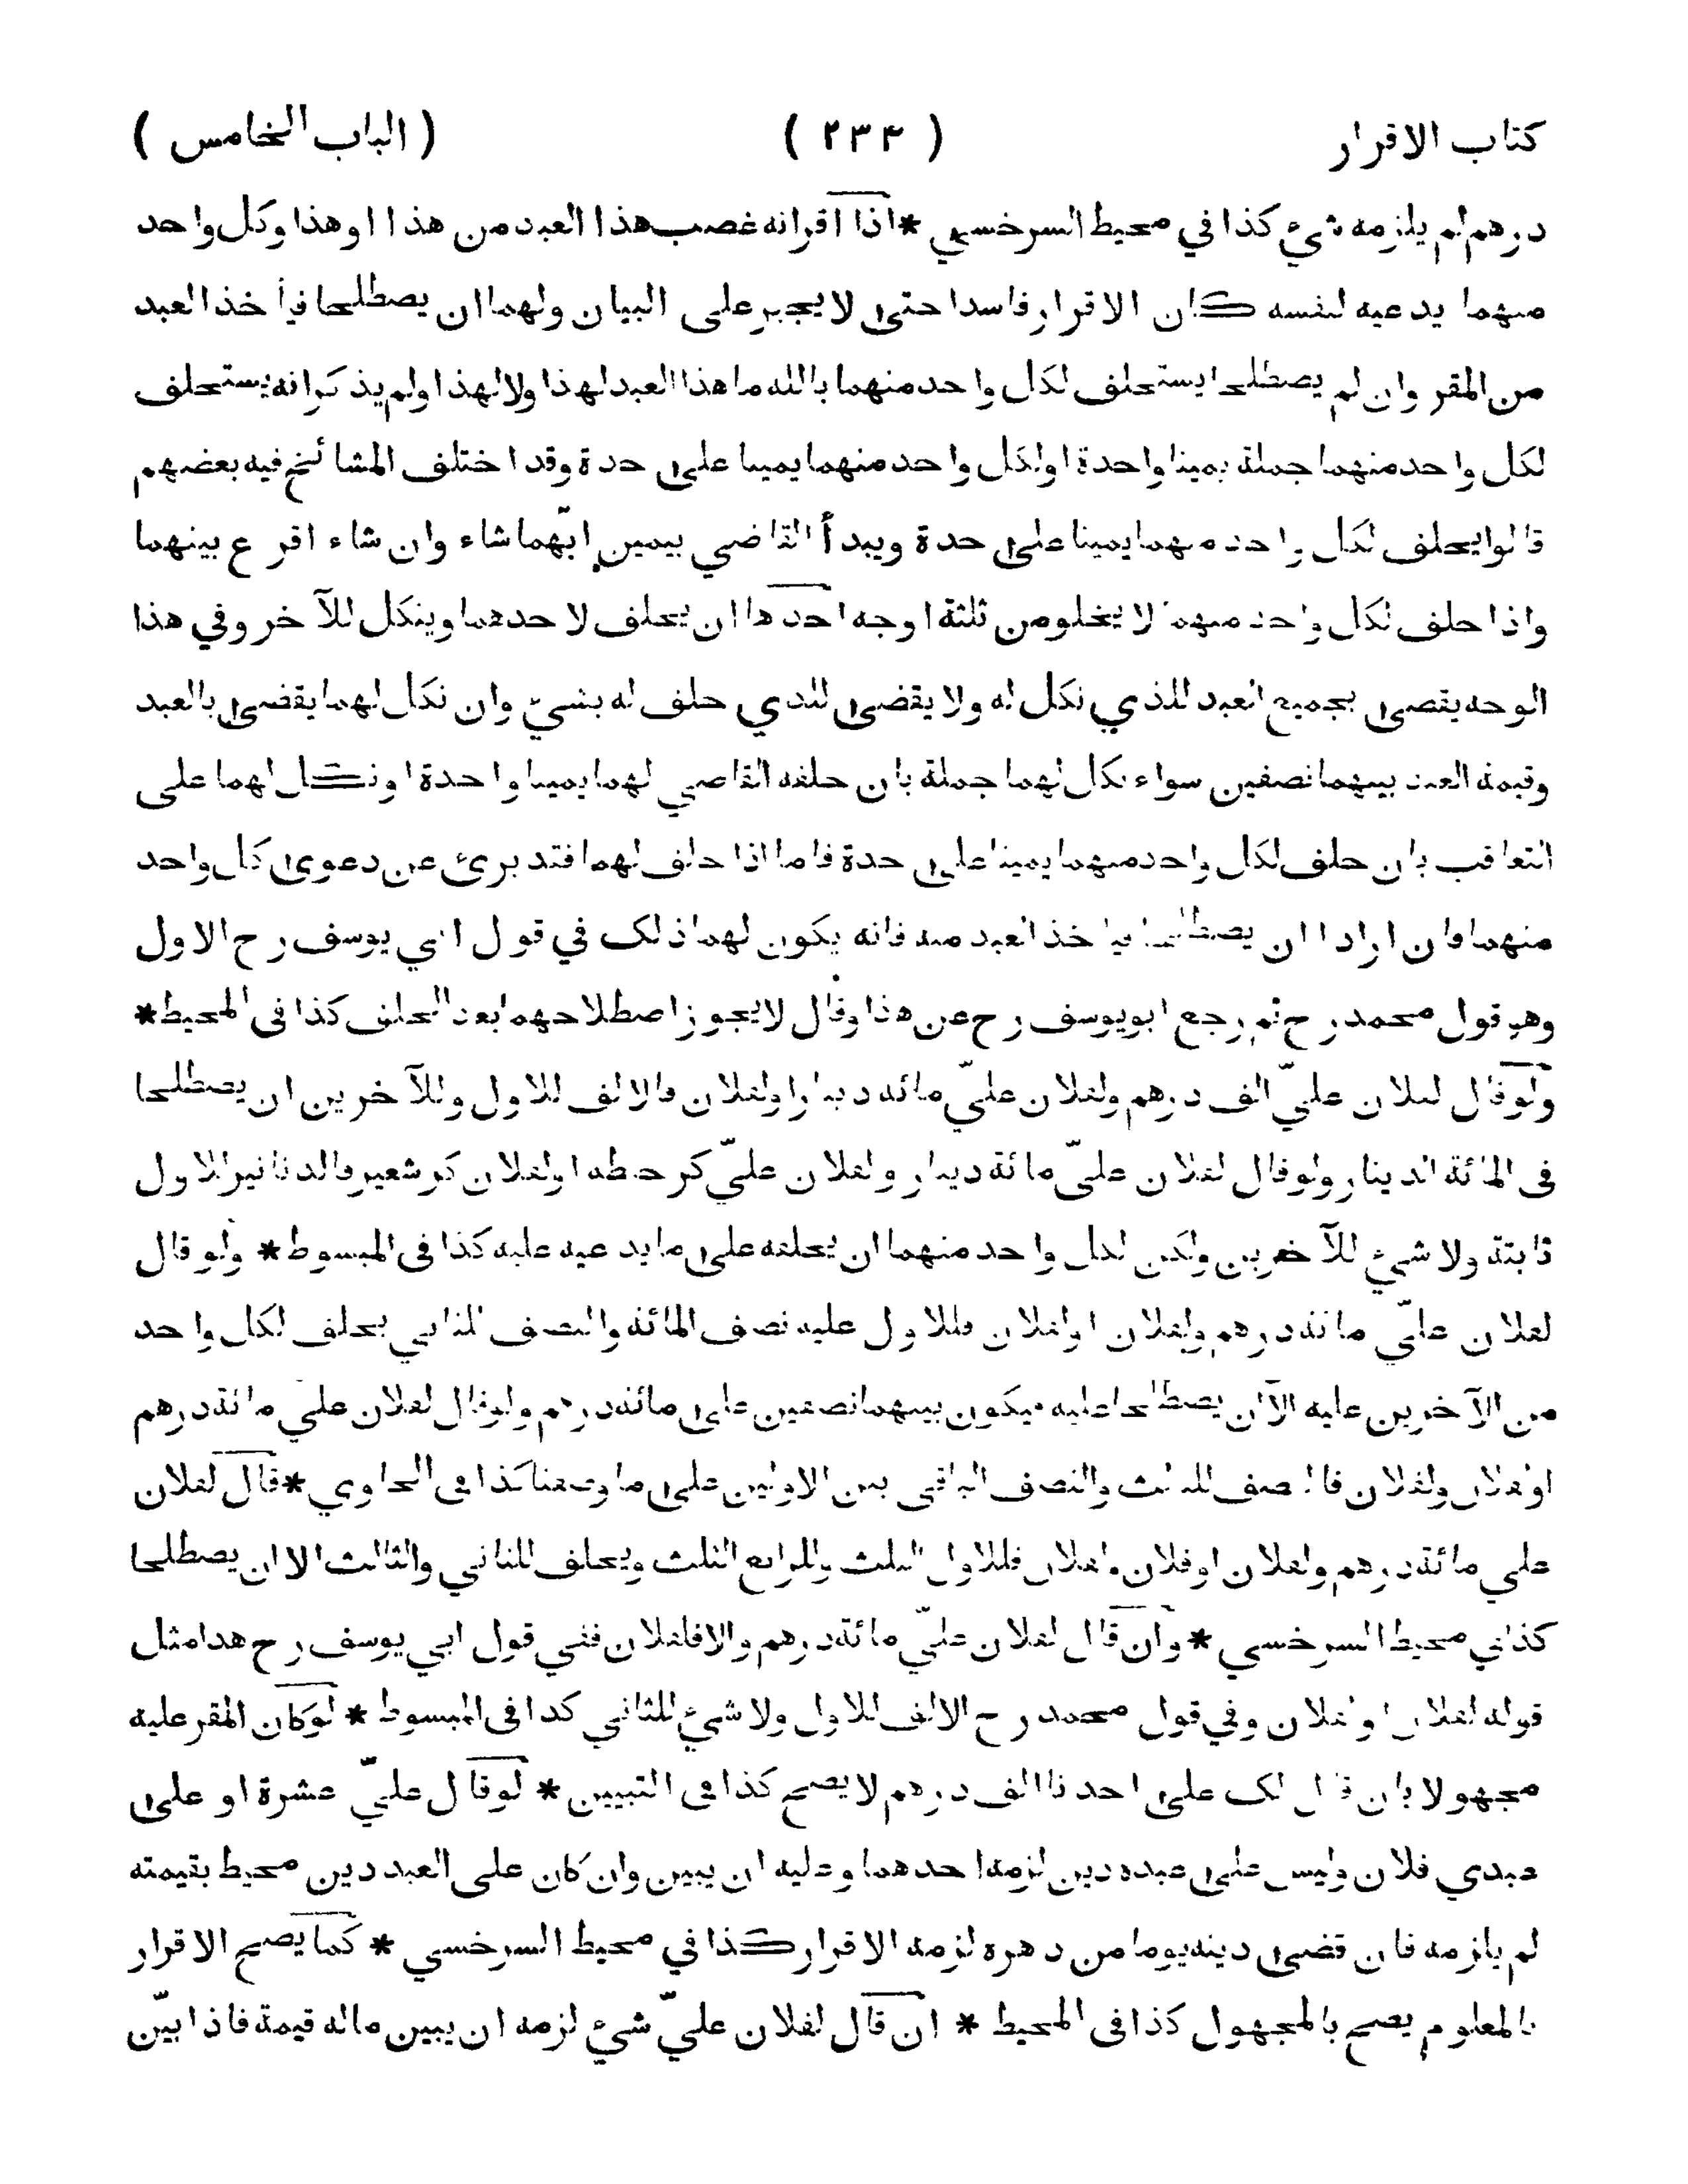 كتاب الاقرار ( ٢٣٣ ) ( الباب الخامس )
درهم لم يلزمه شيء كذا في محيط السرخسي * اذا اقر انه غصب هذا العبد من هذا او هذا وكل واحد
منهما يدعيه لنفسه كان الاقرار فاسدا حتى لا يجبر على البيان ولهما ان يصطلحا فيأخذ العبد
من المقر وان لم يصطلحا يستحلف لكل واحد منهما بالله ما هذا العبد لهذا ولا لهذا ولم يذكر انه يستحلف
لكل واحد منهما جملة يمينا واحدة او لكل واحد منهما يمينا على حدة وقد اختلف المشائخ فيه بعضهم
قالوا يحلف لكل واحد منهما يمينا على حدة ويبدأ القاضي بيمين ايّهما شاء وان شاء اقرع بينهما
واذا حلف لكل واحد منهما لا يخلو من ثلثة اوجه احدها ان يحلف لاحدهما وينكل للآخر وفي هذا
الوجه يقضى بجميع العبد للذي نكل له ولا يقضى للذي حلف له بشيء وان نكل لهما يقضى بالعبد
وقيمة العبد بينهما نصفين سواء نكل لهما جملة بان حلفه القاضي لهما يمينا واحدة او نكل لهما على
التعاقب بان حلف لكل واحد منهما يمينا على حدة فاما اذا حلف لهما فقد برئ عن دعوى كل واحد
منهما فان ارادا ان يصطلحا فيأخذ العبد منه فانه يكون لهما ذلك في قول ابي يوسف رح الاول
وهو قول محمد رح ثم رجع ابو يوسف رح عن هذا وقال لا يجوز اصطلاحهما بعد الحلف كذا فى المحيط *
ولو قال لفلان عليّ الف درهم ولفلان عليّ مائة دينار او لفلان فالالف للاول وللآخرين ان يصطلحا
فى المائة الدينار ولو قال لفلان عليّ مائة دينار ولفلان عليّ كر حنطة او لفلان كر شعير فالدنانير للاول
ثابتة ولا شيء للآخرين ولكن لكل واحد منهما ان يحلفه على ما يدعيه عليه كذا فى المبسوط * ولو قال
لفلان عليّ مائة درهم ولفلان او لفلان فللاول عليه نصف المائة والنصف الثاني يحلف لكل واحد
من الآخرين عليه الا ان يصطلحا عليه فيكون بينهما نصفين على مائة درهم ولو قال لفلان علي مائة درهم
او لفلان ولفلان فالنصف للثالث والنصف الباقي بين الاولين على ما وصفنا كذا في الحاوي * قال لفلان
علي مائة درهم ولفلان او فلان ولفلان فللاول الثلث وللرابع الثلث ويحلف للثاني والثالث الا ان يصطلحا
كذا في محيط السرخسي * وان قال لفلان عليّ مائة درهم والا فلفلان ففي قول ابي يوسف رح هذا مثل
قوله لفلان او لفلان وفي قول محمد رح الالف للاول ولا شيء للثاني كذا فى المبسوط * لو كان المقر عليه
مجهولا بان قال لك على احدنا الف درهم لا يصح كذا في التبيين * لو قال عليّ عشرة او على
عبدي فلان وليس على عبده دين لزمه احدهما وعليه ان يبين وان كان على العبد دين محيط بقيمته
لم يلزمه فان قضى دينه يوما من دهره لزمه الاقرار كذا في محيط السرخسي * كما يصح الاقرار
بالمعلوم يصح بالمجهول كذا فى المحيط * ان قال لفلان عليّ شيء لزمه ان يبين ماله قيمة فاذا بيّن